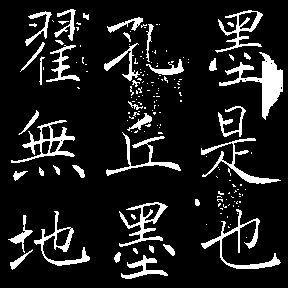 墨是也
孔丘墨
翟無地